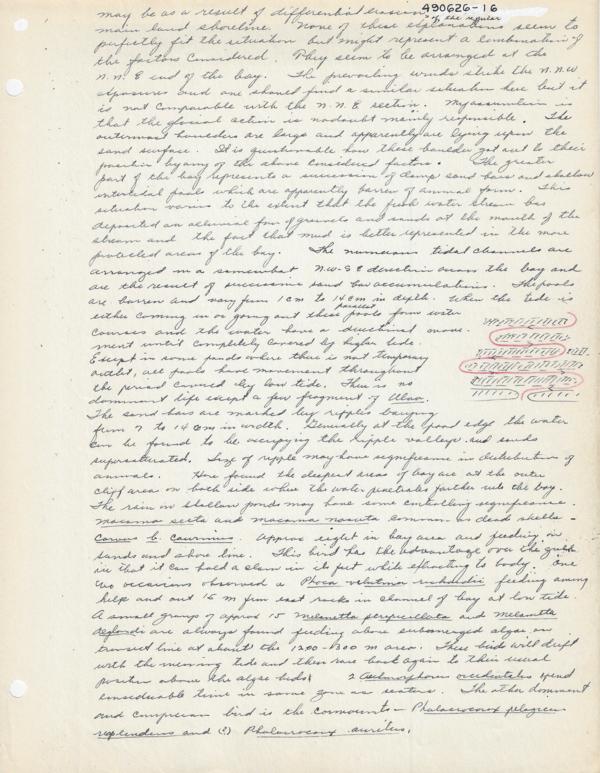 490626-16
may be as a result of differential erosion of the regular
main land shoreline. None of these explanations seem to
perfectly fit the situation but might represent a combination of
the factors considered. They seem to be arranged at the
N.N.E end of the bay. The prevailing winds strike the N.N.W
exposures and one should find a similar situation here but it
is not comparable with the N.N.E section. My assumption is
that the glacial action is no doubt mainly responsible. The
outermost boulders are large and apparently are lying upon the
sand surface. It is questionable how these boulder got out to their
position by any of the above considered factors. The greater
part of the bay represents a succession of damp sand bars and shallow
intertidal pools which are apparently barren of animal form. This
situation varies to the extent that the fresh water stream has
deposited an alluvial fan of gravels and sands at the mouth of the
stream and the fact that mud is better represented in the more
protected areas of the bay. The numerous tidal channels are
arranged in a somewhat N.W.S E direction across the bay and
are the result of successive sand bar accumulations. The pools
are barren and vary from 1 cm to 14 cm in depth. When the tide is
either coming in or going out these pools form parallel water
courses and the water have a directional move-
ment until completely covered by higher tide.
Except in some ponds where there is not temporary
outlet, all pools have movement throughout
the period covered by low tide. There is no
dominant life except a few fragment of Ulva.
The sand bars are marked by ripples varying
from 7 to 14 cm in width. Generally at the pond edge the water
can be found to be occupying the ripple valleys and sands
supersaturated. Size of ripple may have significance in distribution of
animals. Have found the deepest areas of bay are at the outer
cliff area on both side where the water penetrates farther into the bay.
The rain on shallow ponds may have some controlling significance.
Macoma secta and macoma nasuta common as dead shells -
Corvus b. caurinus. Approx eight in bay area and feeding on
sands and shore line. This bird has the advantage over the gulls
in that it can hold a clam in its feet while efforting to body. One
two occasions observed a Phoca vitulina richardii feeding among
kelp and out 15 m from east rocks in channel of bay at low tide.
A small group of approx 15 melanitta perspicillata and melanitta
deglandi are always found feeding above submerged algae on
transect line at about the 1200-1300 m area. These birds will drift
with the morning tide and then race back again to their usual
position above the algae beds. 2 Aechmophorus occidentalis spend
considerable time in same zone as scoters. The other dominant
and conspicuous bird is the cormorants - Phalacrocorax pelagicus
resplendens and (?) Phalacrocorax auritus.